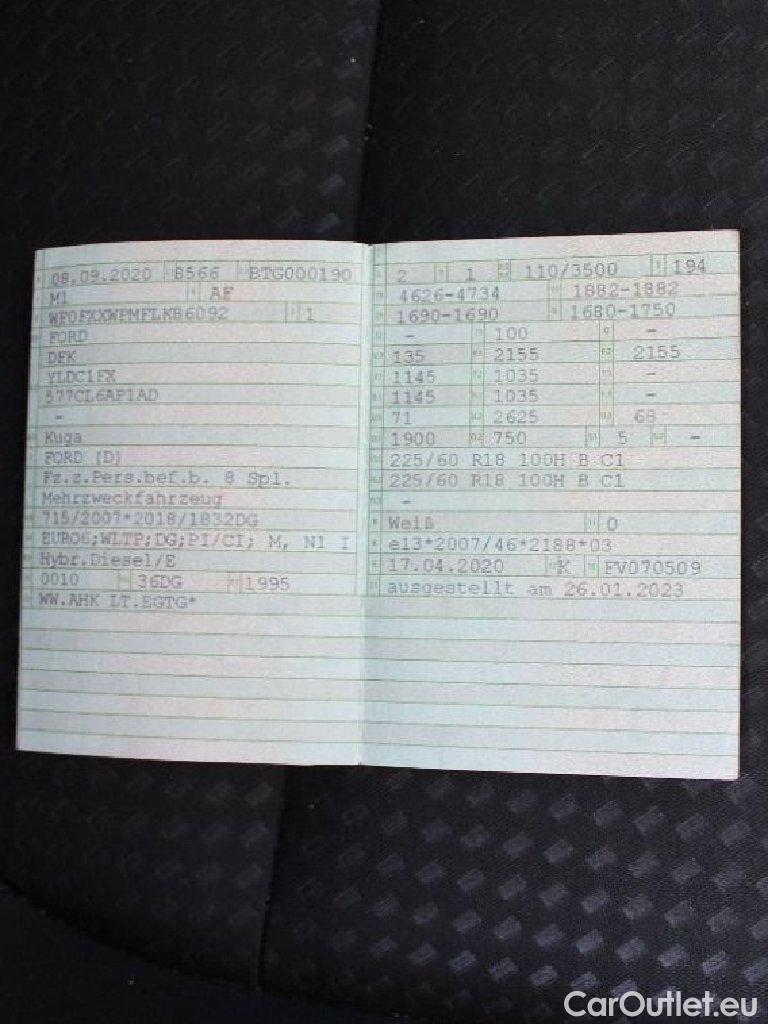 08.09.2020 8566 BTG000190
M1 AF
1
FORD
DFK
YLDC1FX
577CL6AP1AD
-
Kuga
FORD (D)
Fz.z.Pers.bef.b. 8 Spl.
Mehrzweckfahrzeug
715/2007*2018/1832DG
EURO6;WLTP;DG;PI/CI; M, N1 I
Hybr.Diesel/E
0010 36DG 1995
WW.AHK LT.EGTG*
2 1 110/3500 194
4626-4734 1882-1882
1690-1690 1680-1750
- 100 -
135 2155 2155
1145 1035 -
1145 1035 -
71 2625 68
1900 750 5 -
225/60 R18 100H B C1
225/60 R18 100H B C1
-
Weiß 0
e13*2007/46*2188*03
17.04.2020 K FV070509
ausgestellt am 26.01.2023
CarOutlet.eu